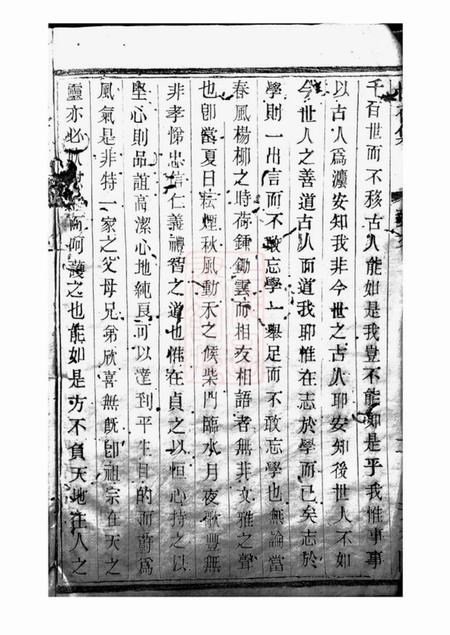 千百世而不移古人能如是我豈不能如是乎我惟事事
以古人為灋安知我非今世之古人耶安知後世人不如
今世人之善道古人而道我耶惟在志於學而已矣志於
學則一出言而不敢忘學一舉足而不敢忘學也無論當
春風楊柳之時荷鍾鋤雲而相友相語者無非文雅之聲
也卽當夏日耘煙秋風動禾之候柴門臨水月夜歌豐無
非孝悌忠信仁義禮智之道也惟在貞之以恒心持之以
堅心則品誼高潔心地純良可以達到平生目的而蔚為
風氣是非特一家之父母兄弟欣喜無旣卽祖宗在天之
靈亦必 而呵護之也能如是方不負天地生人之